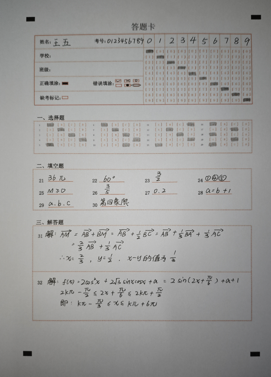 答题卡
姓名: 王五 考号:0123456789 0 1 2 3 4 5 6 7 8 9
学校:
班级:
正确填涂: 错误填涂:
缺考标记:
一、选择题
二、填空题
21 36π 22 60° 23 3/5 24 ①③④
25 m≥0 26 3/5 27 0.2 28 a=b+1
29 a.b.c 30 第四象限
三、解答题
31 解: AM = AB + BM = AB + 1/3 BC = AB + 1/3 AB + 1/3 AC
= 2/3 AB + 1/3 AC
∴x= 2/3 , y= 1/3 , x-y的值为 1/3
32 解: f(x) = 2cos²x + 2√3 sinxcosx + a = 2sin(2x+π/6)+a+1
2kπ - π/2 ≤ 2x + π/6 ≤ 2kπ + π/2
即: kπ - π/3 ≤ x ≤ kπ + π/6